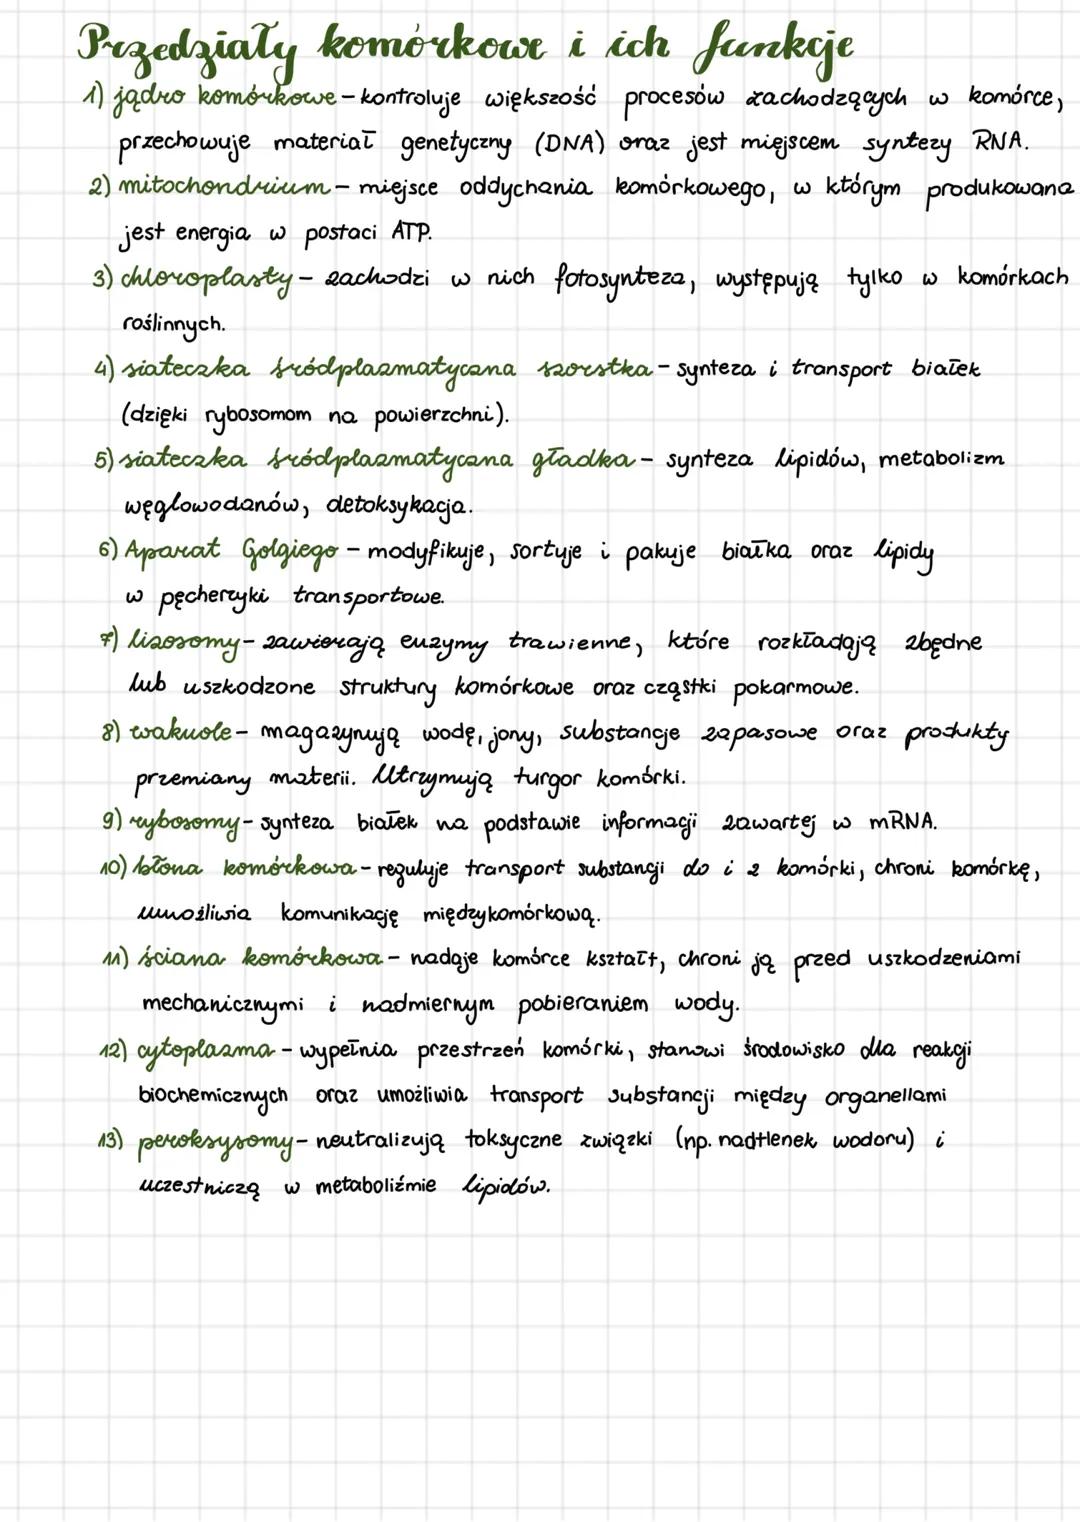 Przedziały komórkowe i ich funkcje
1) jądro komórkowe - kontroluje większość procesów zachodzących w komórce,
przechowuje materiał genetyczny (DNA) oraz jest miejscem syntezy RNA.
2) mitochondrium - miejsce oddychania komórkowego, w którym produkowana
jest energia w postaci ATP.
3) chloroplasty - zachodzi w nich fotosynteza, występują tylko w komórkach
roślinnych.
4) siateczka śródplazmatyczna szorstka - synteza i transport białek
(dzięki rybosomom na powierzchni).
5) siateczka śródplazmatyczna gładka - synteza lipidów, metabolizm
węglowodanów, detoksykacja.
6) Aparat Golgiego - modyfikuje, sortuje i pakuje białka oraz lipidy
w pęcherzyki transportowe.
7) lizosomy - zawierają enzymy trawienne, które rozkładają zbędne
lub uszkodzone struktury komórkowe oraz cząstki pokarmowe.
8) wakuole - magazynują wodę, jony, substancje zapasowe oraz produkty
przemiany materii. Utrzymują turgor komórki.
9) rybosomy - synteza białek na podstawie informacji zawartej w mRNA.
10) błona komórkowa - reguluje transport substancji do i z komórki, chroni komórkę,
umożliwia komunikację międzykomórkową.
11) ściana komórkowa - nadaje komórce kształt, chroni ją przed uszkodzeniami
mechanicznymi i nadmiernym pobieraniem wody.
12) cytoplazma - wypełnia przestrzeń komórki, stanowi środowisko dla reakcji
biochemicznych oraz umożliwia transport substancji między organellami
13) peroksysomy - neutralizują toksyczne związki (np. nadtlenek wodoru) i
uczestniczą w metaboliźmie lipidów.